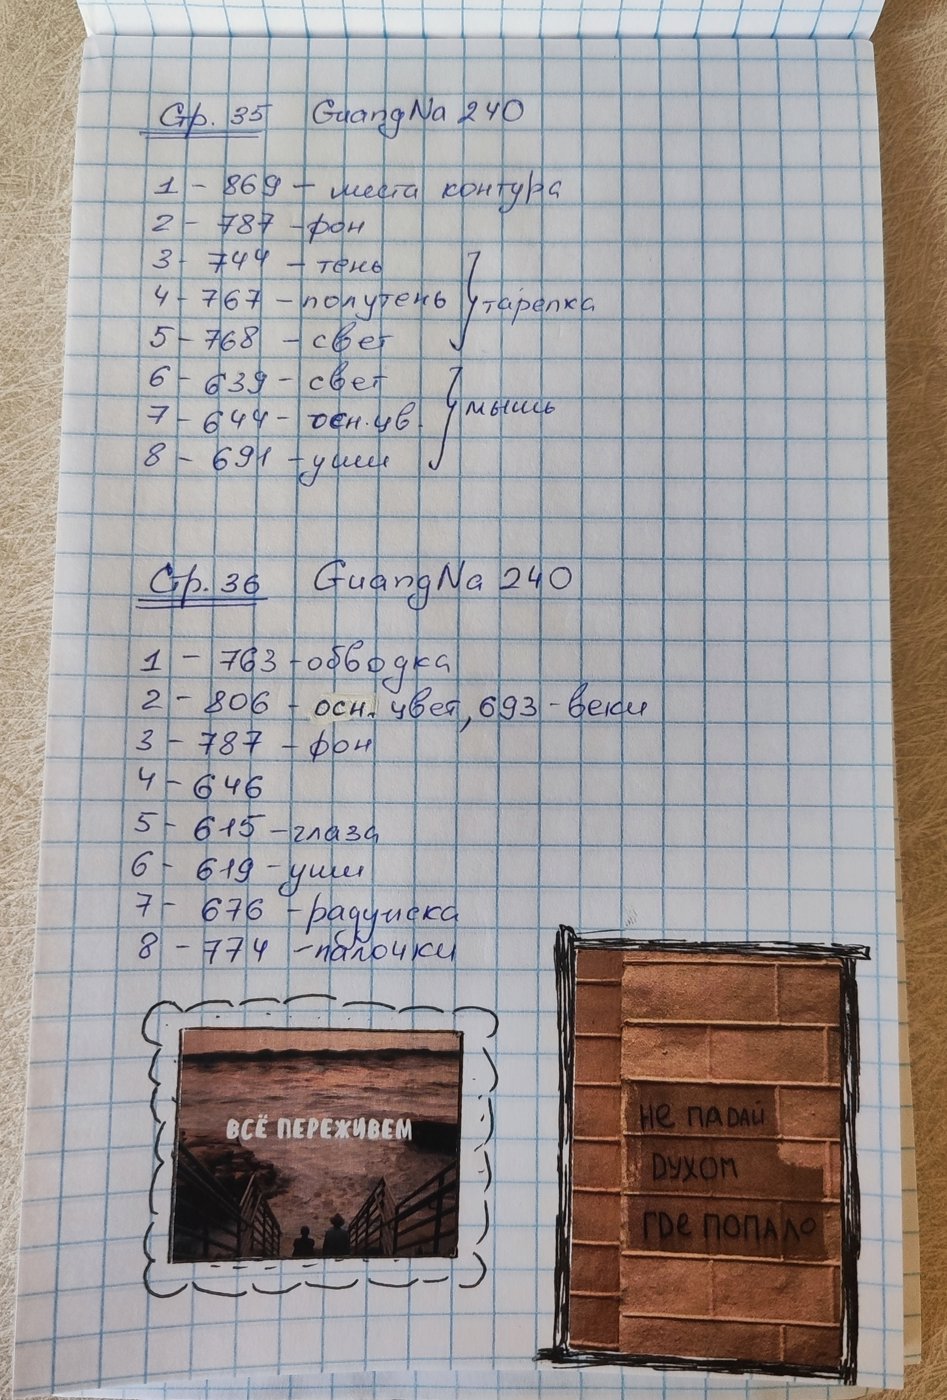 Стр. 35 GuangNa 240
1 - 869 - места контура
2 - 787 - фон
3 - 744 - тень
4 - 767 - полутень тарелка
5 - 768 - свет
6 - 639 - свет
7 - 644 - осн. цв. мышь
8 - 691 - уши
Стр. 36 GuangNa 240
1 - 763 - обводка
2 - 806 - осн. цвет, 693 - веки
3 - 787 - фон
4 - 646
5 - 615 - глаза
6 - 619 - уши
7 - 676 - радужка
8 - 774 - палочки
ВСЁ ПЕРЕЖИВЕМ
НЕ ПАДАЙ
ДУХОМ
ГДЕ ПОПАЛО